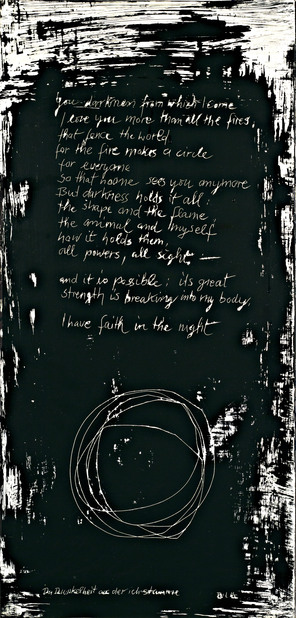 you darkness from which I come
I love you more than all the fires
that fence the world.
for the fire makes a circle
for everyone
So that noone sees you anymore
But darkness holds it all:
the shape and the flame
the animal and myself
how it holds them,
all powers, all sight —
and it is possible: its great
strength is breaking into my body.
I have faith in the night
Du Dunkelheit aus der ich stamme